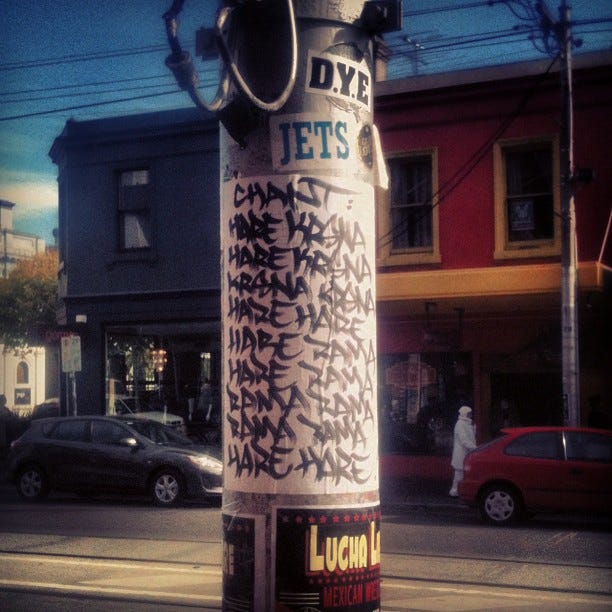 D.Y.E
JETS
CHANT:
HARE KRSNA
HARE KRSNA
KRSNA KRSNA
HARE HARE
HARE RAMA
HARE RAMA
RAMA RAMA
RAMA RAMA
HARE HARE
LUCHA
MEXICAN